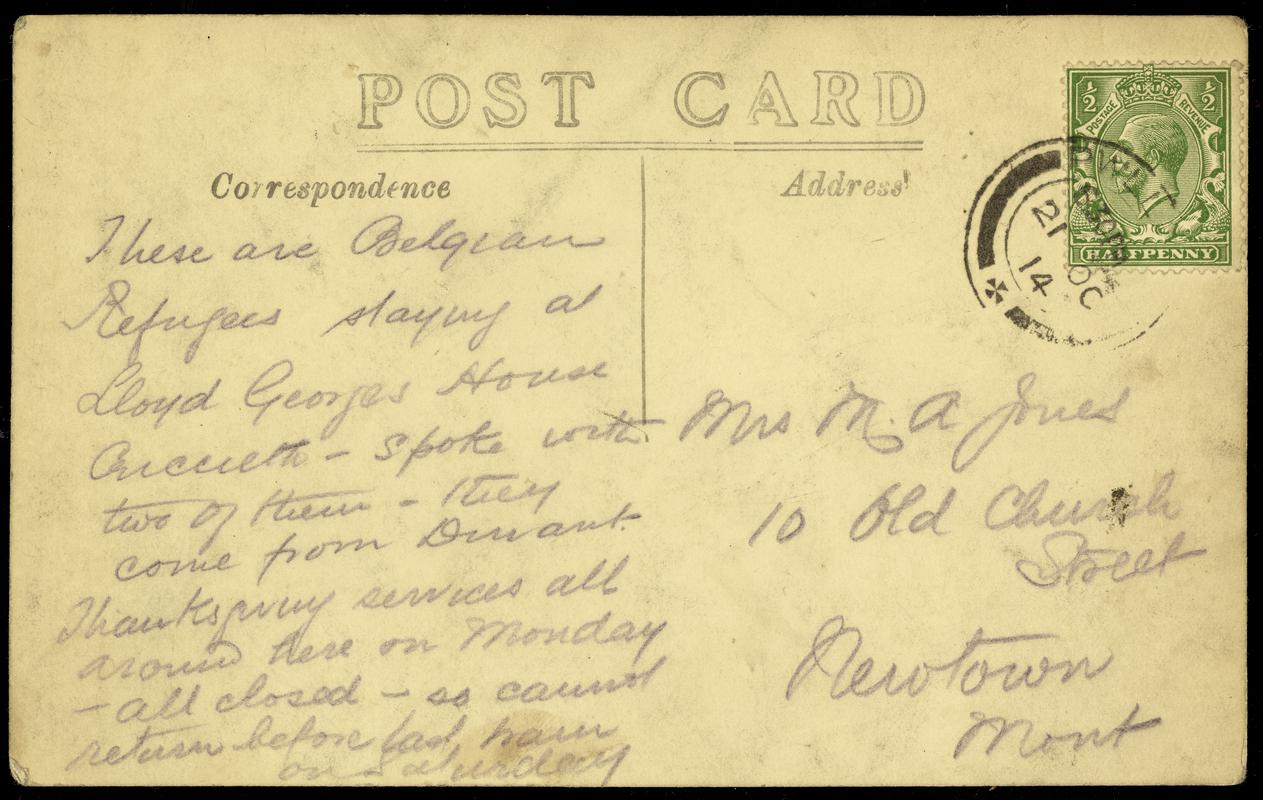 POST CARD
Correspondence
Address
½ ½
POSTAGE REVENUE
HALFPENNY
21 OC
14
These are Belgian
Refugees staying at
Lloyd Georges House
Criccieth - Spoke with
two of them - they
come from Dinant.
Thanksgiving services all
around here on Monday
- all closed - so cannot
return before last train
on Saturday
Mrs M. A Jones
10 Old Church
Street
Newtown
Mont